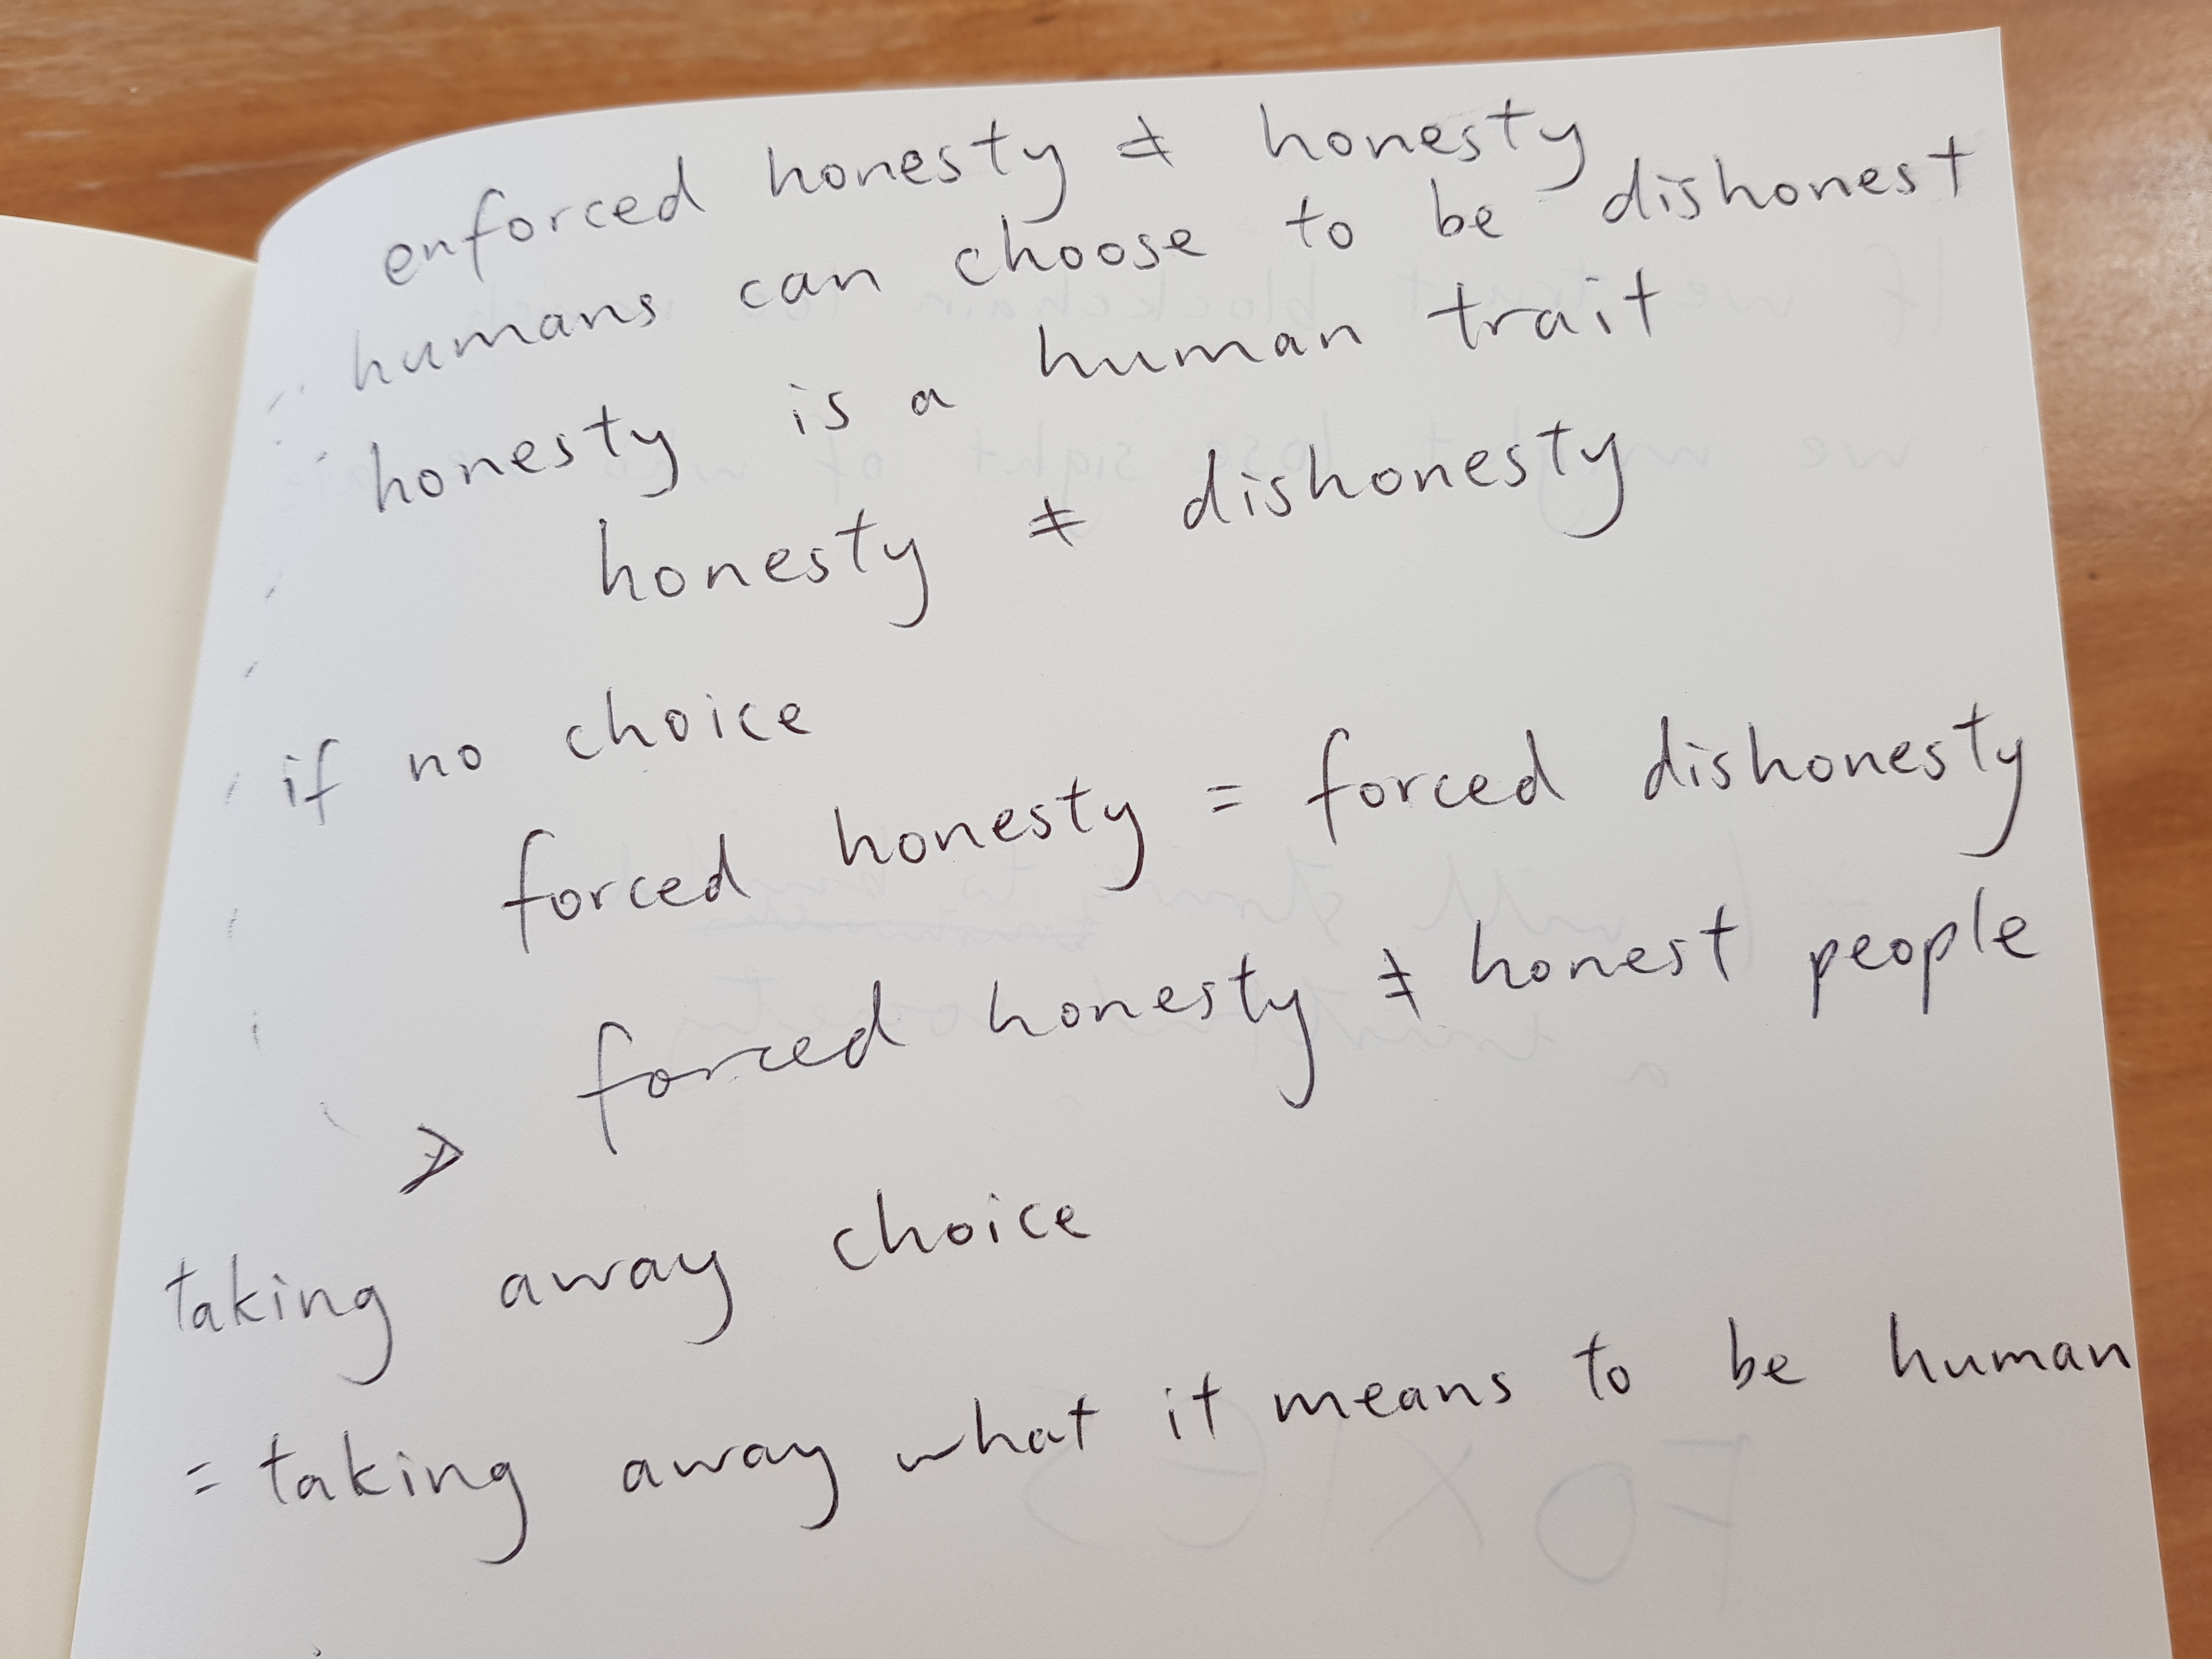 enforced honesty ≠ honesty
humans can choose to be dishonest
honesty is a human trait
honesty ≠ dishonesty
if no choice
forced honesty = forced dishonesty
forced honesty ≠ honest people
taking away choice
= taking away what it means to be human